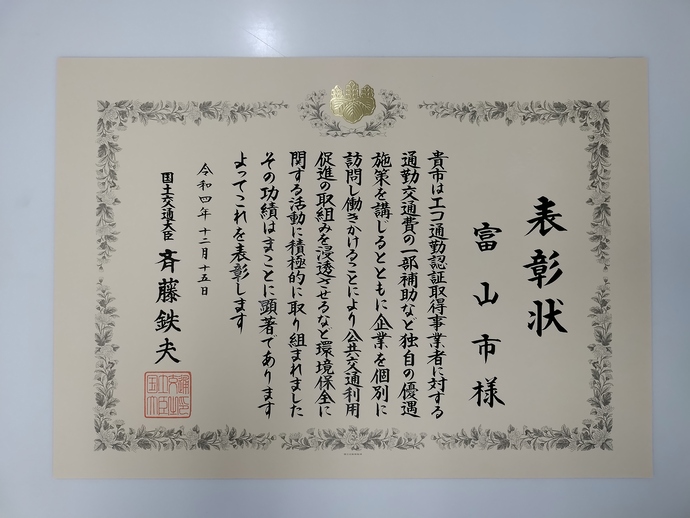 表彰状
富山市様
貴市はエコ通勤認証取得事業者に対する
通勤交通費の一部補助など独自の優遇
施策を講じるとともに企業を個別に
訪問し働きかけることにより公共交通利用
促進の取組みを浸透させるなど環境保全に
関する活動に積極的に取り組まれました
その功績はまことに顕著であります
よってこれを表彰します
令和四年十二月十五日
国土交通大臣 斉藤鉄夫